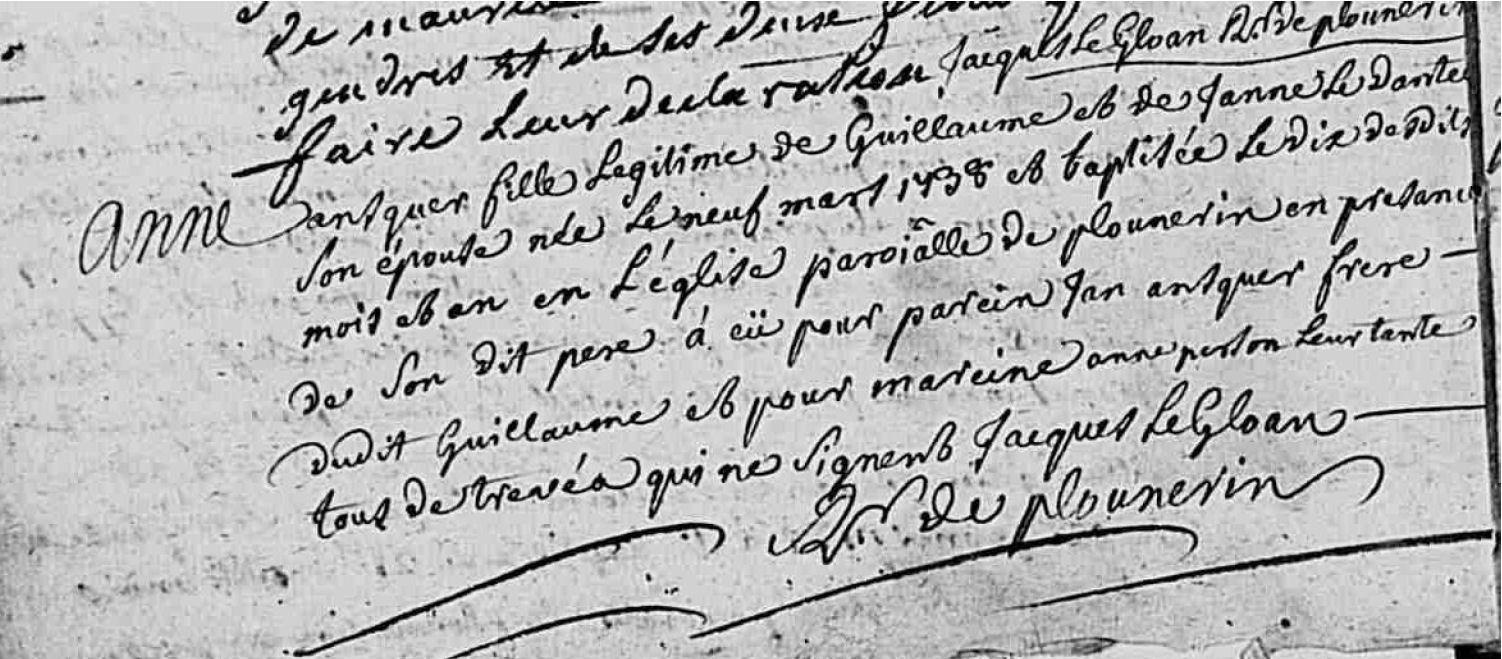 de maurice
gendres et de ses deux
faire leur declaration Jacques Le Gloan Rr. de plounerin
anne antquer fille Legitime de Guillaume et de Janne Le dantec
son épouse née Le neuf mars 1738 et baptisée Le dix desdits
mois et an en L'église paroiâlle de plounerin en presance
de son dit pere á eü pour parein Jan antquer frere
dudit Guillaume et pour mareine anne person Leur tante
tous de trevéa qui ne signent Jacques Le Gloan
Rr. de plounerin